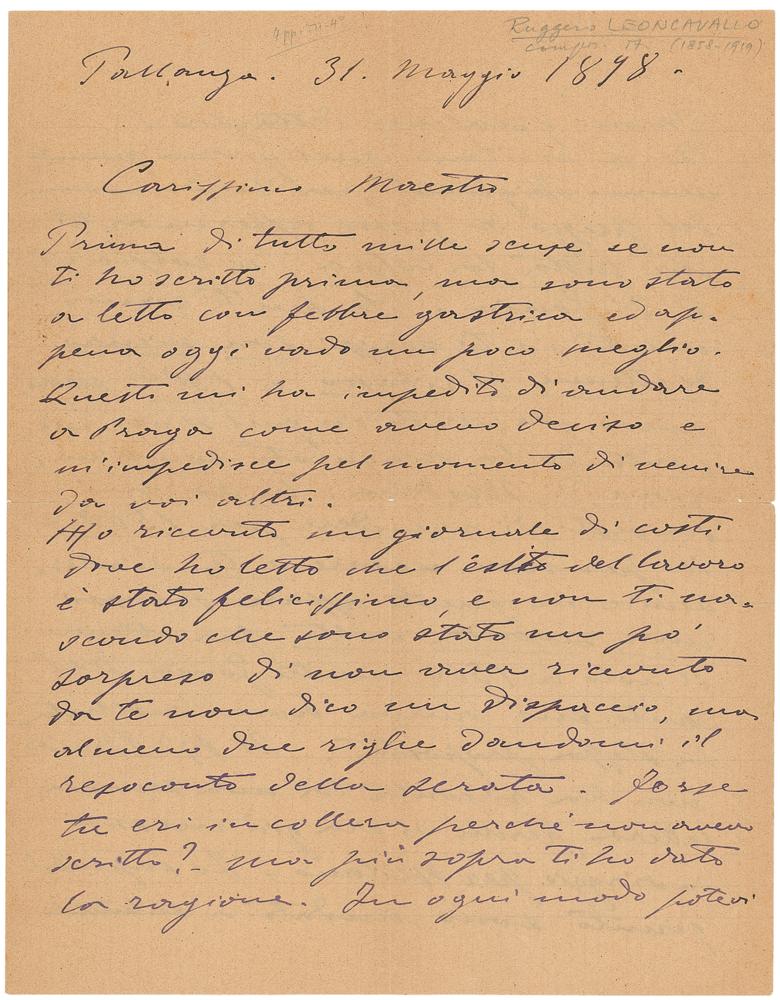 Ruggero LEONCAVALLO
compos. It. (1858-1919)
Pallanza. 31. Maggio 1898.
Carissimo Maestro
Prima di tutto mille scuse se non
ti ho scritto prima, ma sono stato
a letto con febbre gastrica ed ap-
pena oggi vado un poco meglio.
Questo mi ha impedito di andare
a Praga come avevo deciso e
m'impedisce pel momento di venire
da voi altri.
Ho ricevuto un giornale di costì
dove ho letto che l'esito del lavoro
è stato felicissimo, e non ti na-
scondo che sono stato un po'
sorpreso di non aver ricevuto
da te non dico un dispaccio, ma
almeno due righe dandomi il
resoconto della serata. Forse
tu eri in collera perché non avevo
scritto? - ma più sopra ti ho dato
la ragione. In ogni modo potevi